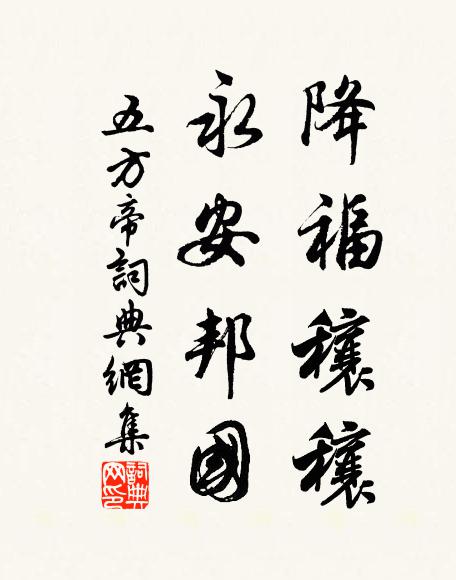 降福穰穰
永安邦國
五方帝詞典網集
詞典网印